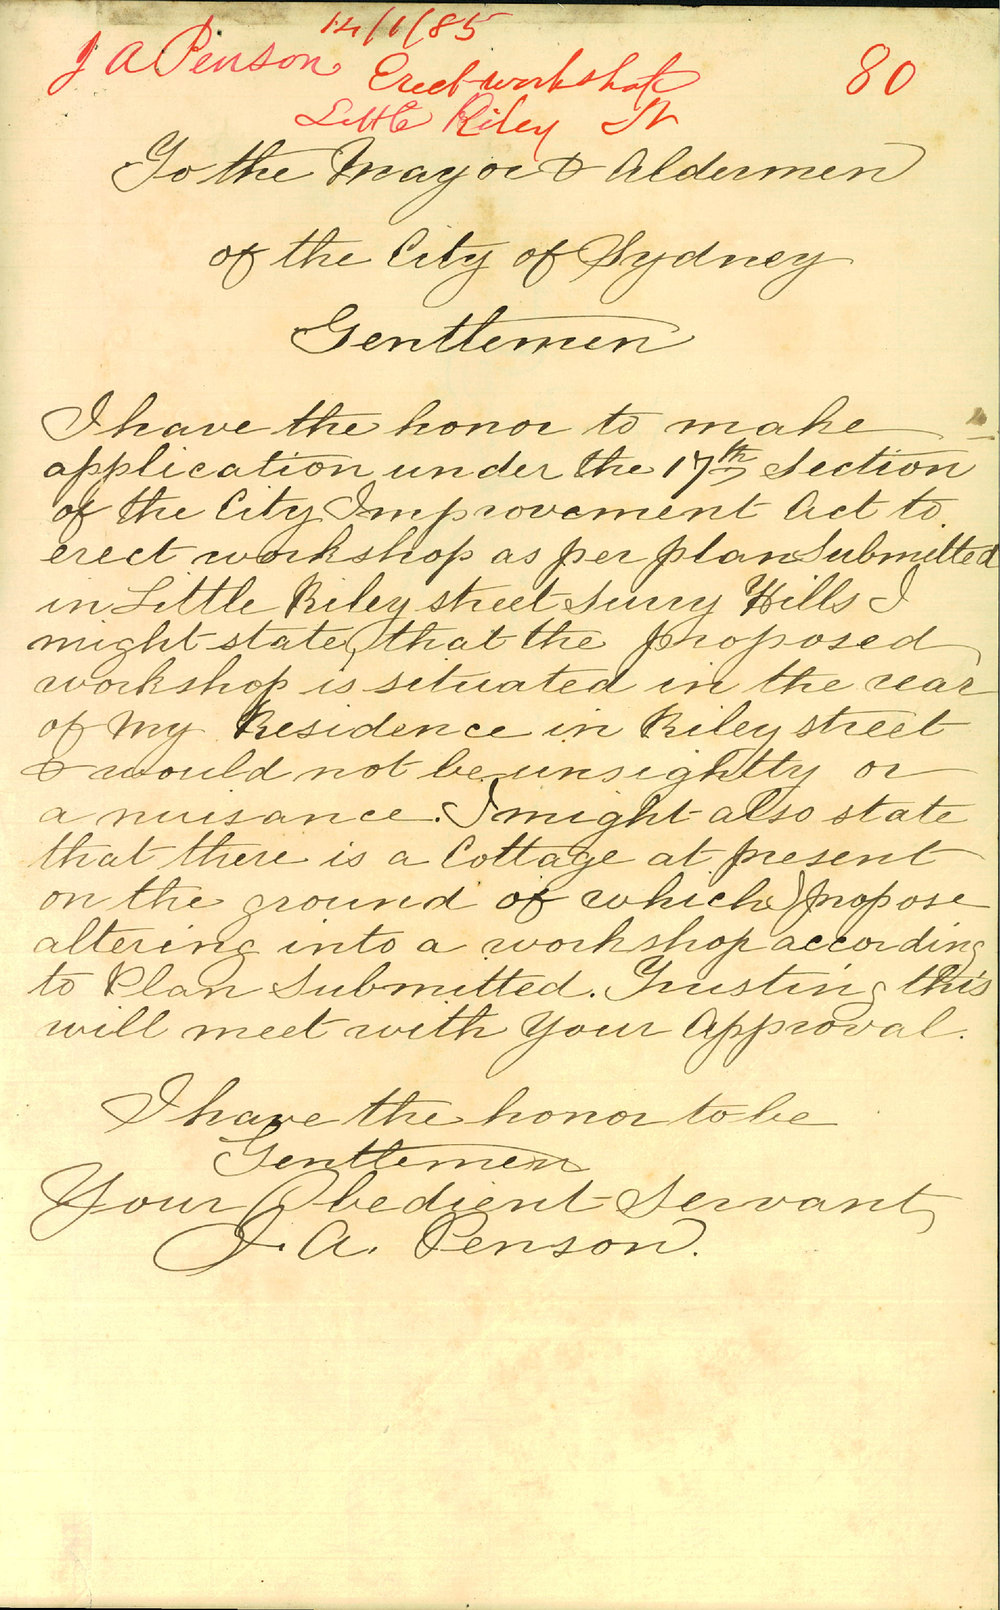 14/1/85
J A Penson
Erect workshop
80
Little Riley St
To the Mayor & Aldermen
of the City of Sydney
Gentlemen
I have the honor to make
application under the 17th Section
of the City Improvement Act to
erect workshop as per plan Submitted
in Little Riley street Surry Hills I
might state, that the proposed
workshop is situated in the rear
of My Residence in Riley street
& would not be unsightly or
a nuisance. I might also state
that there is a Cottage at present
on the ground of which I propose
altering into a workshop according
to Plan Submitted. Trusting this
will meet with Your Approval.
I have the honor to be
Gentlemen
Your Obedient Servant
J. A. Penson.